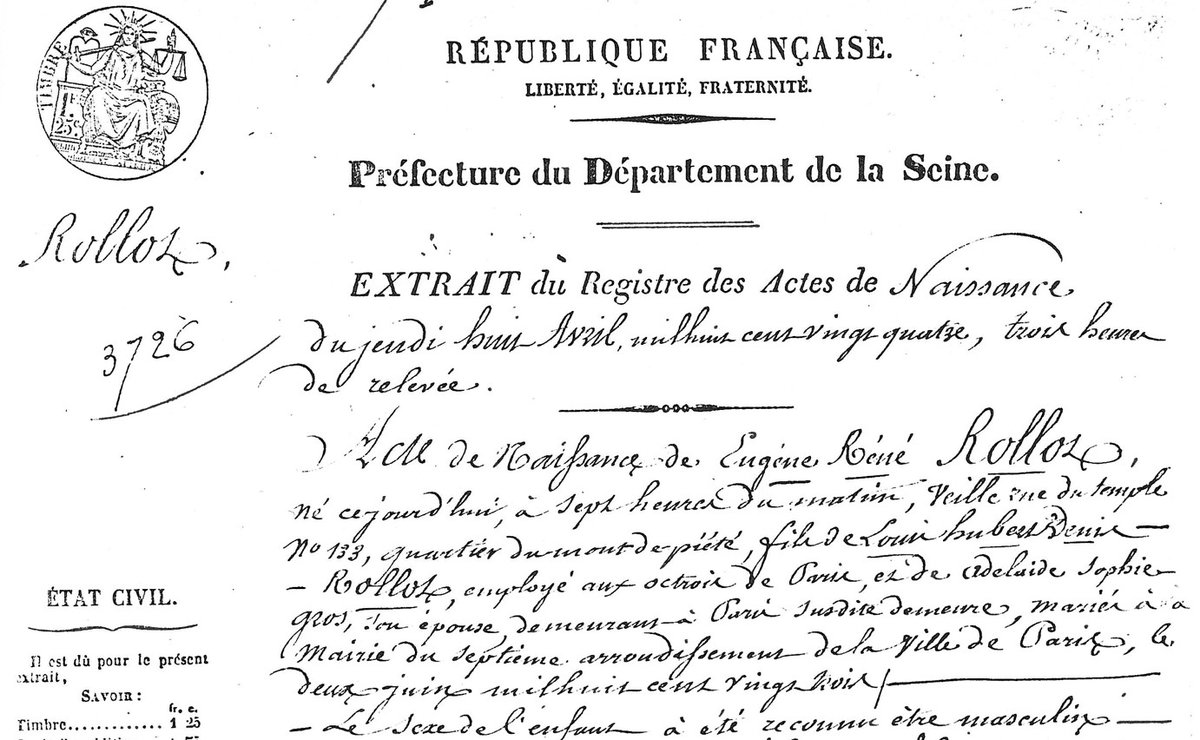 TIMBRE
1 F.
25 c.
RÉPUBLIQUE FRANÇAISE.
LIBERTÉ, ÉGALITÉ, FRATERNITÉ.
Préfecture du Département de la Seine.
Rollot,
3726
EXTRAIT du Registre des Actes de Naissance
du jeudi huit Avril, mil huit cent vingt quatre, trois heures
de relevée.
Acte de Naissance de Eugène Réné Rollot,
né cejourd'hui, à sept heures du matin, Veille rue du temple
No 133, quartier du mont de piété, fils de Louis hubert Denis
Rollot, employé aux octrois de Paris, et de Adelaide Sophie
gros, son épouse, demeurant à Paris susdite demeure, mariés à a
Mairie du Septième arrondissement de la Ville de Paris, le
deux juin mil huit cent vingt trois
Le sexe de l'enfant a été reconnu être masculin
ÉTAT CIVIL.
Il est dû pour le présent
extrait,
SAVOIR :
fr. c.
Timbre............. 1 25